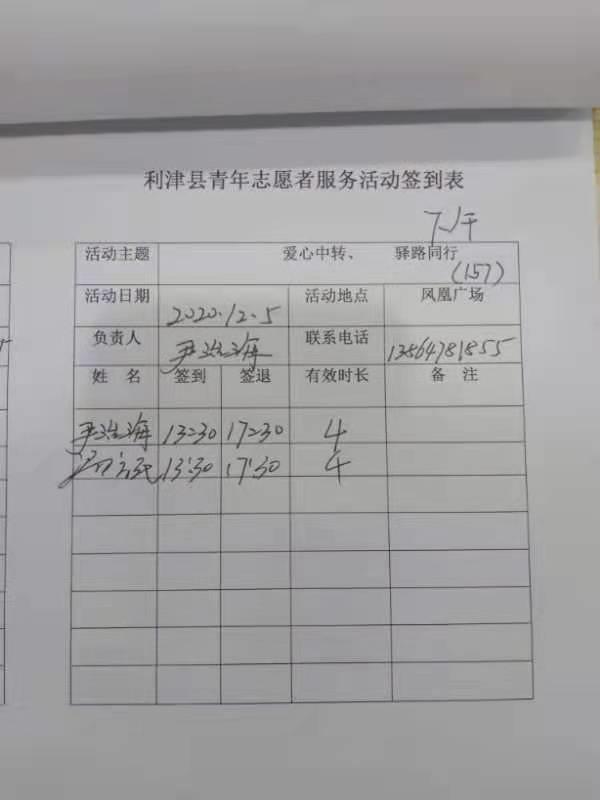 利津县青年志愿者服务活动签到表
下午
活动主题 爱心中转、 驿路同行
(157)
活动日期 2020.12.5 活动地点 凤凰广场
负责人 联系电话 13864781855
姓名 签到 签退 有效时长 备注
13:30 17:30 4
13:30 17:30 4